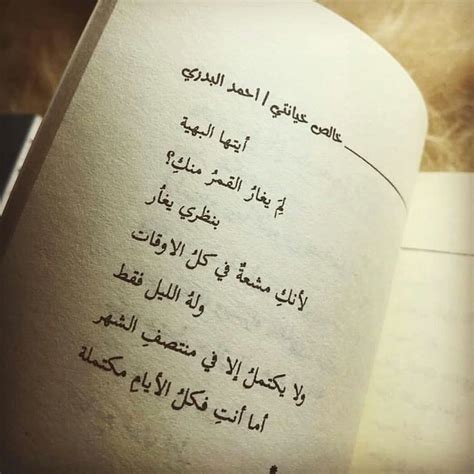 خالص خيانتي | احمد البدري
أيتها البهية
لِمَ يغارُ القمرُ منكِ؟
بنظري يغأر
لأنكِ مشعةٌ في كلُ الاوقات
ولهُ الليل فقط
ولا يكتملُ إلا في منتصفِ الشهر
أما أنتِ فكلُ الأيامِ مكتملة
*